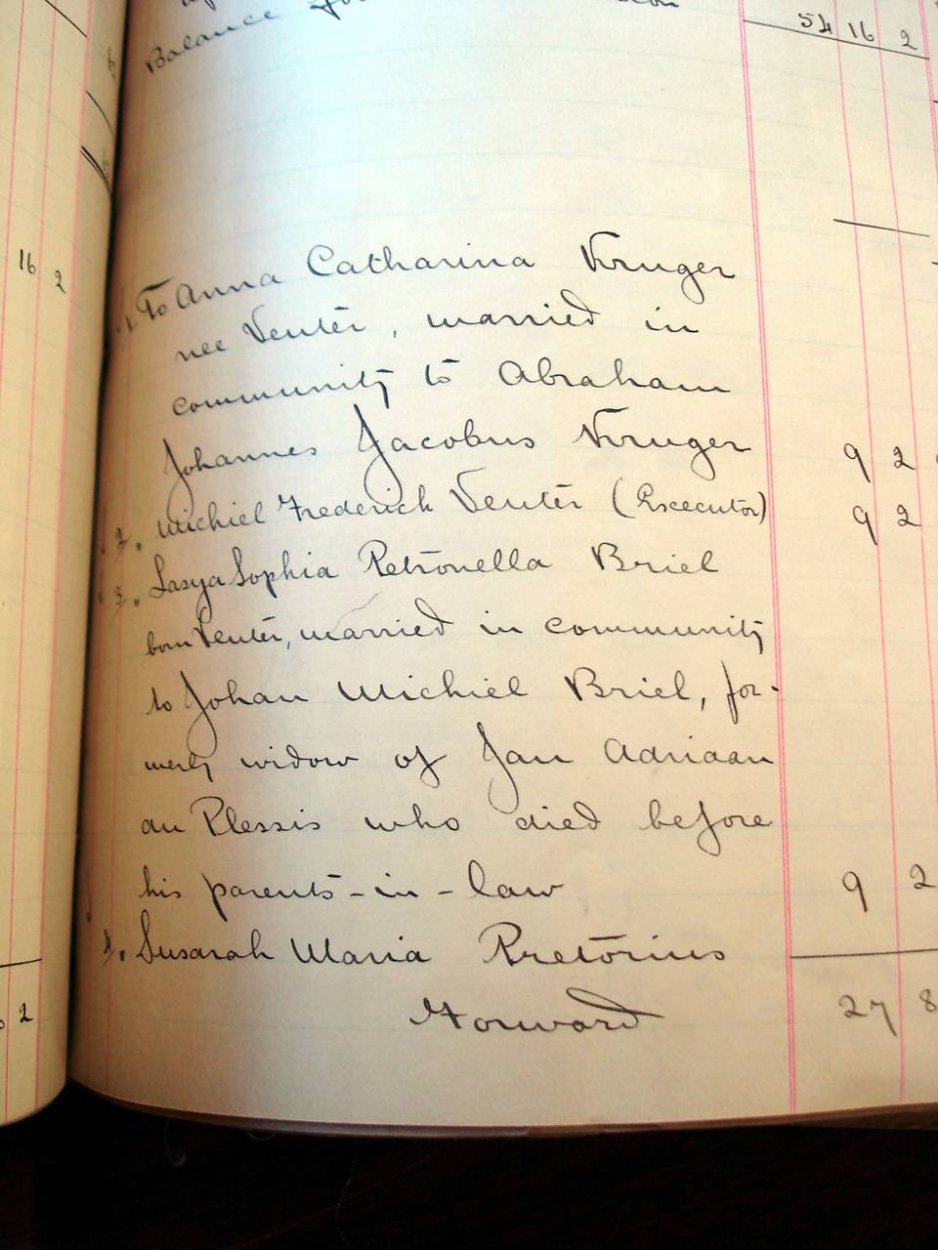 Balance for
54 16 2
16 2
1. To Anna Catharina Kruger
nee Venter, married in
community to Abraham
Johannes Jacobus Kruger 9 2
2. Michiel Frederick Venter (Executor) 9 2
3. Lasya Sophia Petronella Briel
born Venter, married in community
to Johan Michiel Briel, for-
merly widow of Jan Adriaan
du Plessis who died before
his parents-in-law 9 2
4. Susarah Maria Pretorius
Forward 27 8
2